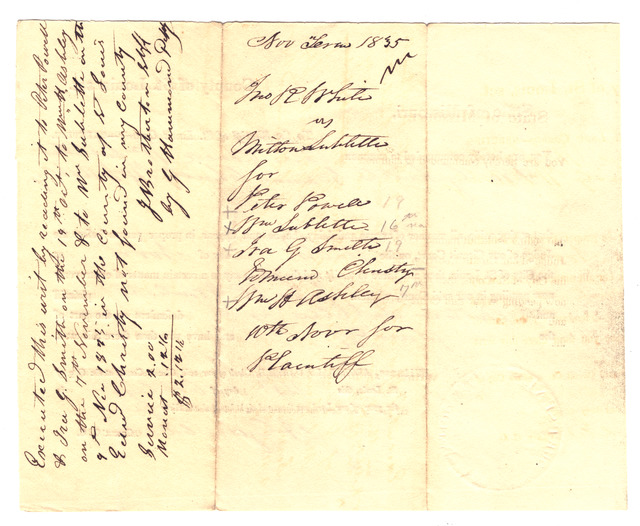 Nov Term 1835
Jno R White
vs
Milton Sublette
for
Peter Powell 19
+ Wm Sublette 16
+ Ira G Smith 19
Edmund Christy
+ Wm H Ashley 17th
10th Novr for
Plaintiff
Executed this writ by reading it to Peter Powell
& Ira G. Smith on the 19th Oct to Wm H Ashley
on the 17th November & to Wm Sublette on the
9th Nov 1835 in the County of St Louis
Edmd Christy not found in my County
Service 200 J Brotherton Shff
by G Hammond Dpy